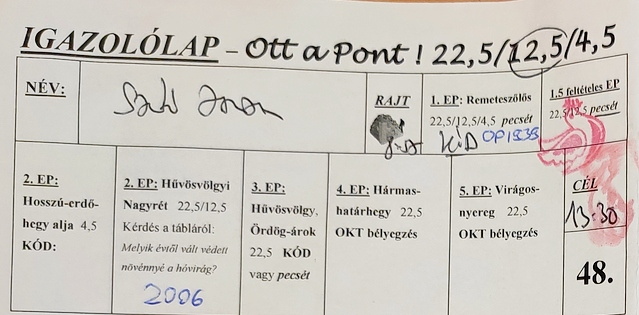 IGAZOLÓLAP – Ott a Pont ! 22,5/12,5/4,5
NÉV:
RAJT
1. EP: Remeteszőlős
22,5/12,5/4,5 pecsét
KÓD OP1535
1.5 feltételes EP
22,5/12,5 pecsét
2. EP:
Hosszú-erdő-
hegy alja 4,5
KÓD:
2. EP: Hűvösvölgyi
Nagyrét 22,5/12,5
Kérdés a tábláról:
Melyik évtől vált védett
növénnyé a hóvirág?
2006
3. EP:
Hűvösvölgy,
Ördög-árok
22,5 KÓD
vagy pecsét
4. EP: Hármas-
határhegy 22,5
OKT bélyegzés
5. EP: Virágos-
nyereg 22,5
OKT bélyegzés
CÉL
13:30
48.